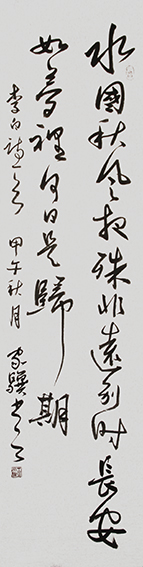 水國秋風夜殊非遠別時長安
如夢裡何日是歸期
李白詩一首 甲午秋月 驥書